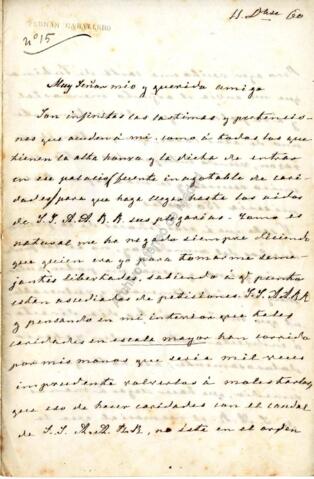 FERNAN CABALLERO
nº 15
11 Dbre 60
Muy Señor mio y querido amigo
Son infinitas las lastimas y pretensio-
nes que acuden á mi como á todas las que
tienen la alta honra y la dicha de entrar
en ese palacio (fuente inagotable de cari-
dades) para que haga llegar hasta los oidos
de S.S. A.A. R.R. sus plegarias. Como es
natural me he negado siempre diciendo
que quien era yo para tomarme seme-
jantes libertades, sabiendo á q punto
estan asediados de peticiones S.S. A.A. R.R.
y pensando en mi interior que tales
caridades en escala mayor han corrido
por mis manos que seria mil veces
imprudente volverlos á molestarlos,
que eso de hacer caridades con el caudal
de S.S. A.A. R.R., no este en el orden